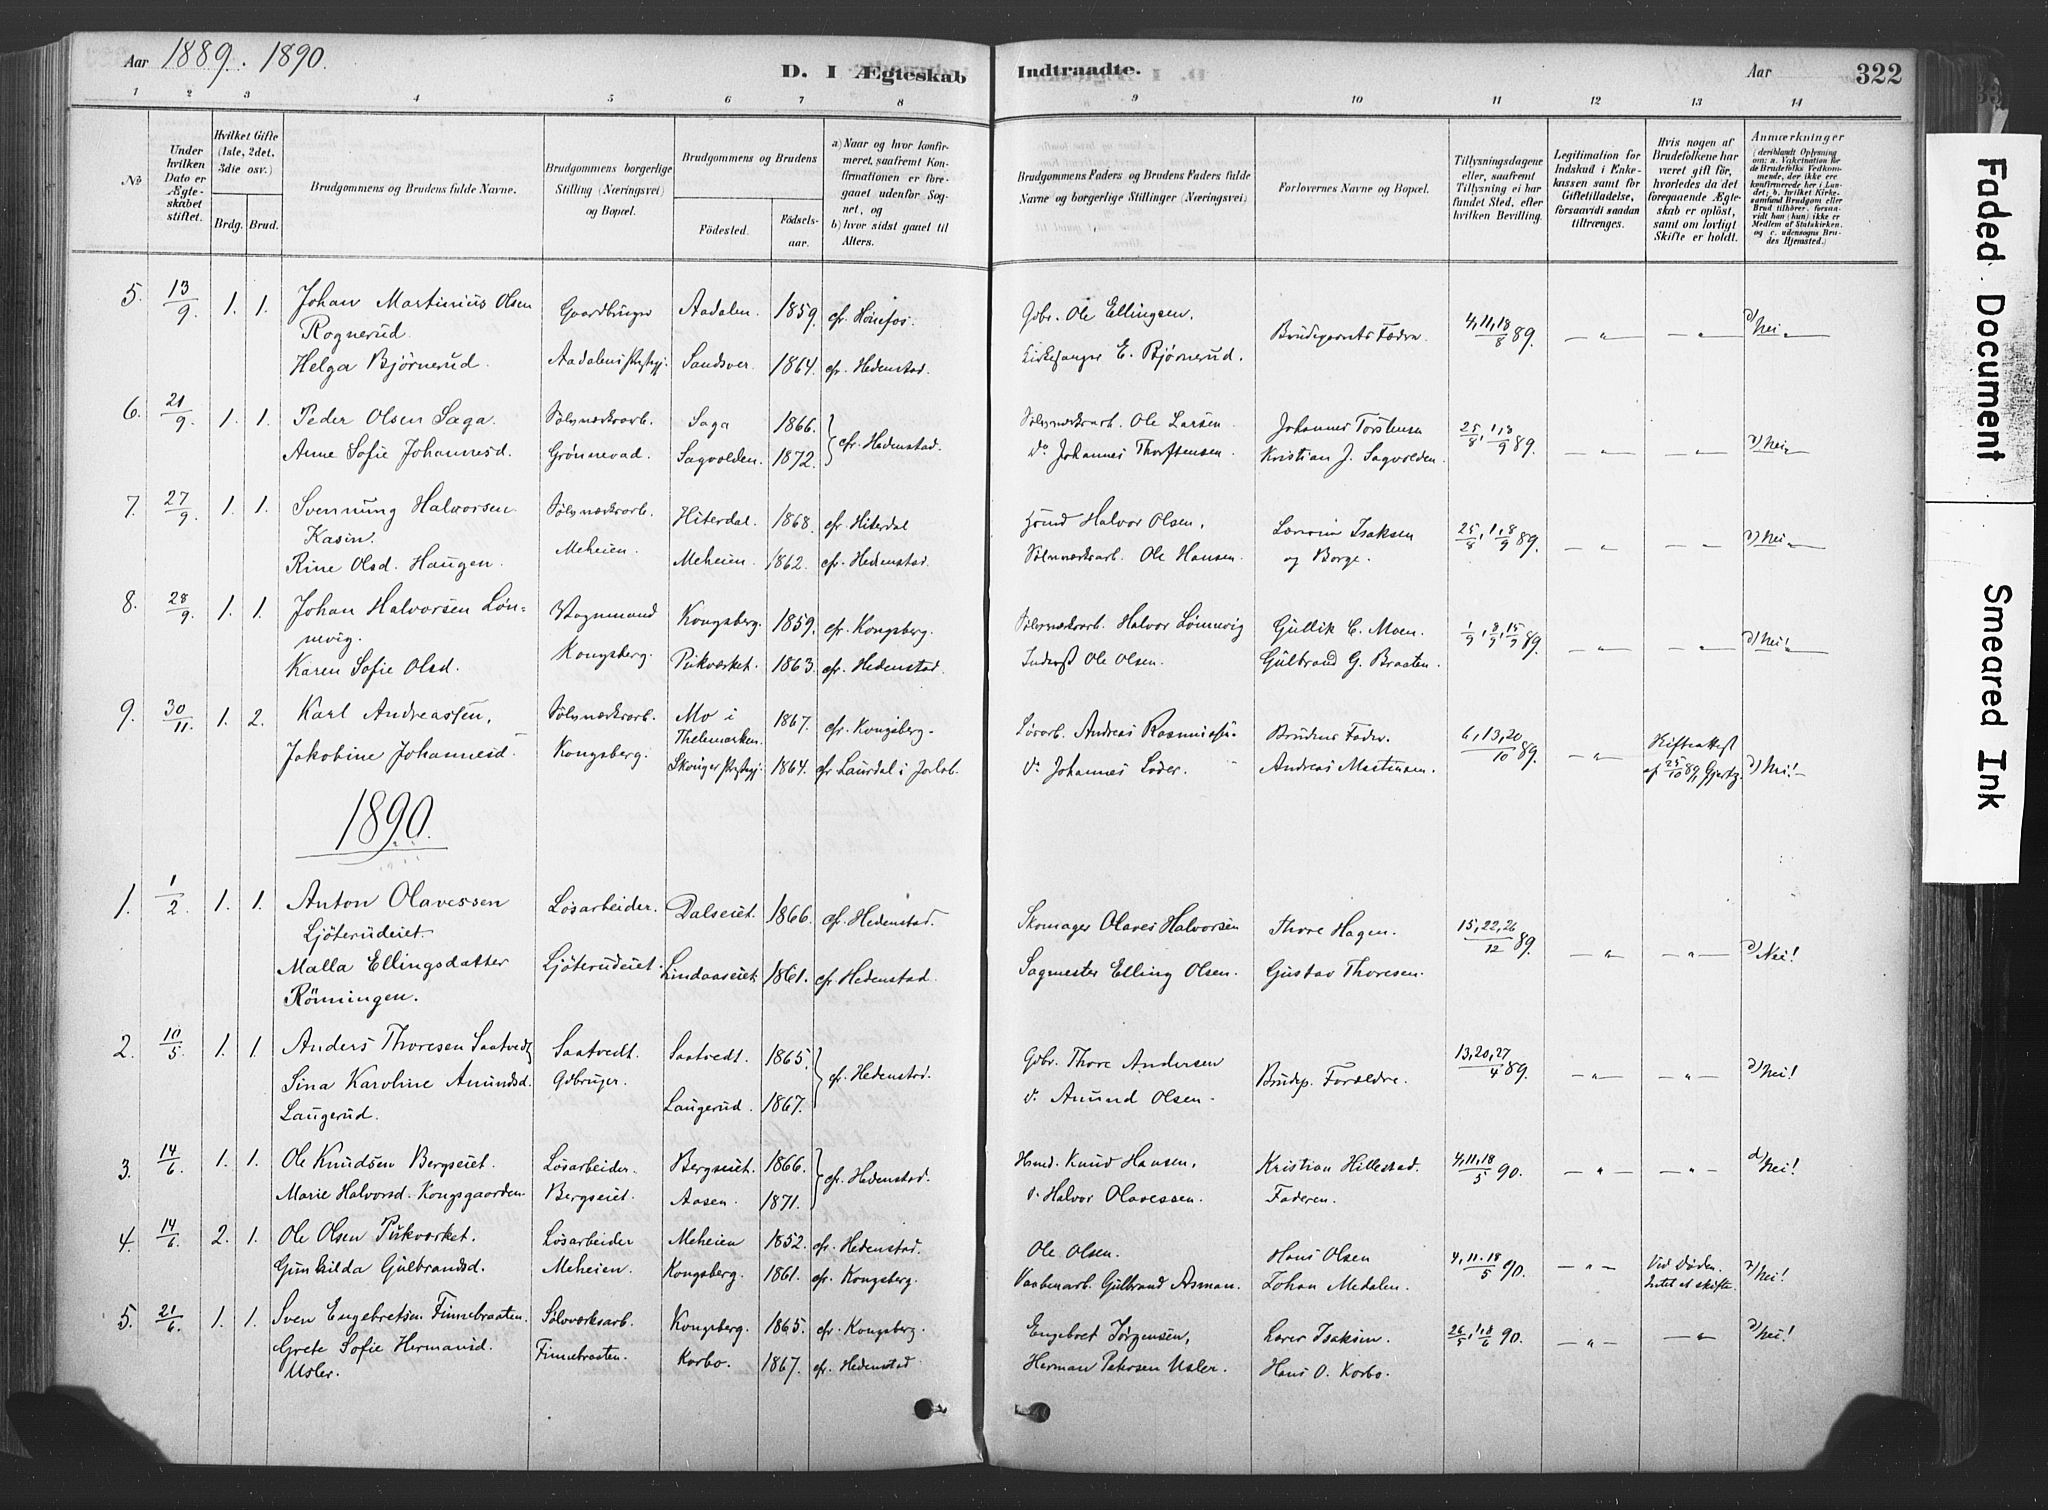 Aar 1889. 1890.
D. I Ægteskab Indtraadte.
Aar 322
1 2 3 4 5 6 7 8 9 10 11 12 13 14
No
Under hvilken Dato er Ægteskabet stiftet.
Hvilket Gifte (1ste, 2det, 3die osv.)
Brdg. Brud.
Brudgommens og Brudens fulde Navne.
Brudgommens borgerlige Stilling (Næringsvei) og Bopæl.
Brudgommens og Brudens
Fødested. Fødselsaar.
a) Naar og hvor konfirmeret, saafremt Konfirmationen er foregaaet udenfor Sognet, og
b) hvor sidst gaaet til Alters.
Brudgommens Faders og Brudens Faders fulde Navne og borgerlige Stillinger (Næringsvei)
Forlovernes Navne og Bopæl.
Tillysningsdagene eller, saafremt Tillysning ei har fundet Sted, efter hvilken Bevilling.
Legitimation for Indskud i Enkekassen samt for Giftetilladelse, forsaavidt saadan tiltrænges.
Hvis nogen af Brudefolkene har været gift før, hvorledes da det foregaaende Ægteskab er opløst, samt om lovligt Skifte er holdt.
Anmærkninger
(deriblandt Oplysning om: a. Vakcination for de Brudefolks Vedkommende, der ikke ere konfirmerede her i Landet; b. hvilket Kirkesamfund Brudgom eller Brud tilhører, forsaavidt han (hun) ikke er Medlem af Statskirken, og c. udensogns Brudes Hjemsted.)
5. 13/9 1. 1. Johan Martinius Olsen Gaardbruger Aadalen. 1859. cfr. Hønefos. Gdbr. Ole Ellingsen. 4,11,18/8 89. — " — — " — a) Nei "
Rognerud.
Helga Bjørnerud. Aadalens Sandsver. 1864. cfr. Hedenstad. Kirkesanger E. Bjørnerud.
6. 21/9 1. 1. Peder Olsen Saga. Sølvværksarb. Saga 1866. cfr. Hedenstad. Sølvværksarb. Ole Larsen Johannes Torstensen 25/8, 1,8/9 89. — " — — " — a) Nei "
Anne Sofie Johannesd. Grønnevad. Sagvolden. 1872. Do Johannes Thorstensen. Kristian J. Sagvolden.
7. 27/9 1. 1. Svennung Halvorsen Sølvværksarb. Hiterdal. 1868. cfr. Hiterdal Halvor Olsen, Isaksen 25/8, 1,8/9 89. — " — — " — a) Nei "
Kasin.
Rine Olsd. Haugen. Meheien. Meheien. 1862. cfr. Hedenstad. Sølvværksarb. Ole Hansen. og Borge.
8. 28/9 1. 1. Johan Halvorsen Løn- Vognmand Kongsberg. 1859. cfr. Kongsberg. Sølvværksarb. Halvor Lønnevig Gullik C. Moen. 1/9, 8/9, 15/9 89. — " — — " — a) Nei "
nevig.
Karen Sofie Olsd. Kongsberg. Pukværket. 1863. cfr. Hedenstad. Inderst Ole Olsen. Gulbrand G. Braaten.
9. 30/11 1. 2. Karl Andreassen, Sølvværksarb. Mo i Thelemarken. 1867. cfr. Kongsberg. Løsarb. Andreas Brudens Fader. 6,13,20/10 89. — " — Skifteattest
Jakobine Johannesd. Kongsberg. Skouger 1864. cfr. Laurdal i Do Johannes Loder. Andreas Martinsen. af 25/10 89, a) Nei!
1890.
1. 1/2 1. 1. Anton Olavessen Løsarbeider. Dalseiet. 1866. cfr. Hedenstad. Skomager Olaves Halvorsen Thore Hagen. 15,22,26/12 89. — " — — " — a) Nei!
Ljöterudeiet.
Malla Ellingsdatter Ljöterudeiet. Lindaaseiet. 1861. cfr. Hedenstad. Sagmester Elling Olsen. Gustav Thoresen.
Rönningen.
2. 10/5 1. 1. Anders Thoresen Saatvedt Saatvedt. Saatvedt. 1865. cfr. Hedenstad. Gdbr. Thore Andersen Brudep. Forældre. 13,20,27/4 89. — " — — " — a) Nei!
Sina Karoline Amundsd. Gdbruger. Laugerud. 1867. Do Amund Olsen.
Laugerud.
3. 14/6 1. 1. Ole Knudsen Bergseiet. Løsarbeider. Bergseiet. 1866. cfr. Hedenstad. Hsmd. Knud Hansen, Kristian Hillestad. 4,11,18/5 90. — " — — " — a) Nei!
Marie Halvorsd. Kongsgaarden. Bergseiet. Aasen. 1871. Do Halvor Olavessen. Faderen.
4. 14/6 2. 1. Ole Olsen Pukværket. Løsarbeider Meheien 1852. cfr. Hedenstad. Ole Olsen. Hans Olsen 4,11,18/5 90. — " — Ved Døden. a) Nei!
Gunhilda Gulbrandsd. Meheien. Kongsberg. 1861. cfr. Kongsberg. Vaabenarb. Gulbrand Asman. Johan Medalen. Intet at skifte.
5. 21/6 1. 1. Sven Engebretsen Finnebraaten. Sølvværksarb. Kongsberg. 1865. cfr. Kongsberg. Engebret Jørgensen, Isaksen. 26/5, 1,8/6 90. — " — — " — a) Nei!
Grete Sofie Hermansd. Finnebraaten. Korbo. 1867. cfr. Hedenstad Herman Petersen Usler. Hans O. Korbo.
Usler.
Faded Document
Smeared Ink